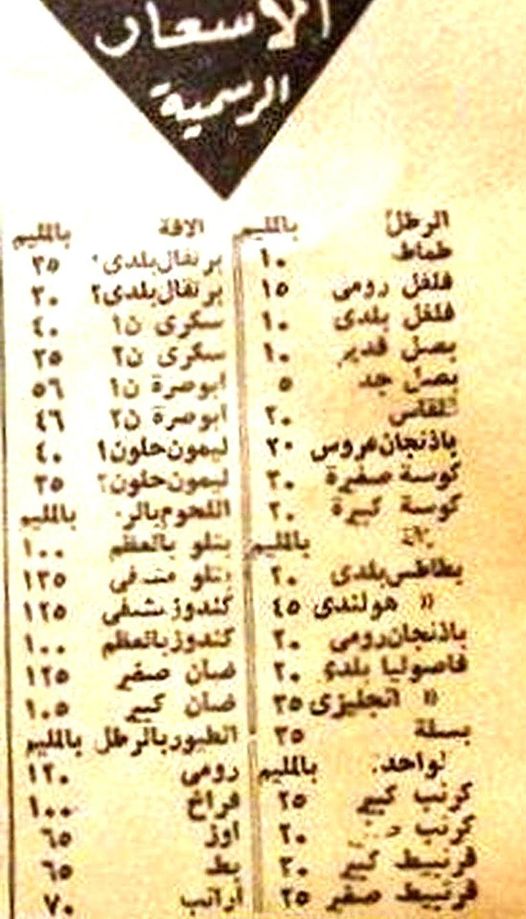 الأسعار
الرسمية
الرطل بالمليم
طماطم ١٠
فلفل رومى ١٥
فلفل بلدى ١٠
بصل قديم ١٠
بصل جد ٥
قلقاس ٢٠
باذنجان عروس ٢٠
كوسة صغيرة ٣٠
كوسة كبيرة ٢٠
بالمليم
بطاطس بلدى ٢٠
« هولندى ٤٥
باذنجان رومى ٢٠
فاصوليا بلدى ٢٠
« انجليزى ٣٥
بسلة ٣٥
لواحد بالمليم
كرنب كبير ٢٥
كرنب ٢٠
قرنبيط كبير ٣٠
قرنبيط صغير ٢٥
الاقة بالمليم
برتقال بلدى ٣٥
برتقال بلدى ٢ ٣٠
سكرى ن١ ٤٠
سكرى ن٢ ٣٥
ابوصرة ن١ ٥٦
ابوصرة ن٢ ٤٦
ليمون حلو ن١ ٤٠
ليمون حلو ن٢ ٣٥
اللحوم بالر بالمليم
بتلو بالعظم ١٠٠
بتلو مشفى ١٣٥
كندوز مشفى ١٢٥
كندوز بالعظم ١٠٠
ضان صغير ١٢٥
ضان كبير ١٠٥
الطيور بالرطل بالمليم
رومى ١٢٠
فراخ ١٠٠
اوز ٦٥
بط ٦٥
ارانب ٧٠